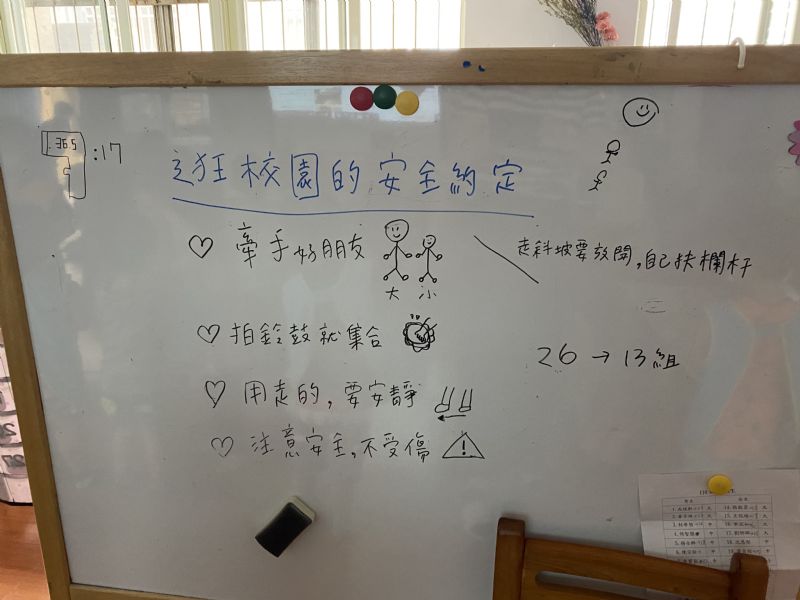 36.5 :17
逛校園的安全約定
♡ 牽手好朋友
大 小
走斜坡要放開,自己扶欄杆
♡ 拍鈴鼓就集合
26 → 13組
♡ 用走的,要安靜
♡ 注意安全,不受傷
!